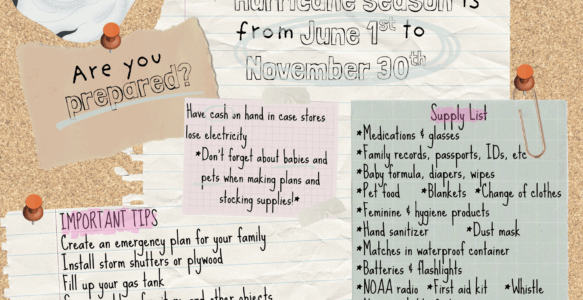 Hurricane season is
from June 1st to
November 30th
Are you
prepared?
Have cash on hand in case stores
lose electricity
*Don't forget about babies and
pets when making plans and
stocking supplies!*
Supply List
*Medications & glasses
*Family records, passports, IDs, etc
*Baby formula, diapers, wipes
*Pet food *Blankets *Change of clothes
*Feminine & hygiene products
*Hand sanitizer *Dust mask
*Matches in waterproof container
*Batteries & flashlights
*NOAA radio *First aid kit *Whistle
IMPORTANT TIPS
Create an emergency plan for your family
Install storm shutters or plywood
Fill up your gas tank